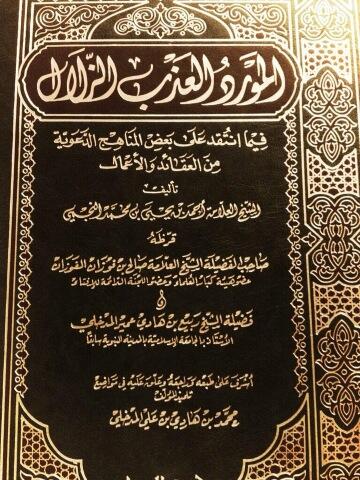 المورد العذب الزلال
فيما انتقد على بعض المناهج الدعوية
من العقائد والأعمال
تأليف
الشيخ العلامة أحمد بن يحيى بن محمد النجمي
قرظه
صاحب الفضيلة الشيخ العلامة صالح بن فوزان الفوزان
عضو هيئة كبار العلماء وعضو اللجنة الدائمة للإفتاء
و
فضيلة الشيخ ربيع بن هادي عمير المدخلي
الأستاذ بالجامعة الإسلامية بالمدينة النبوية سابقا
أشرف على طبعه وراجعه وعلق عليه في مواضع
تلميذ المؤلف
محمد بن هادي بن علي المدخلي